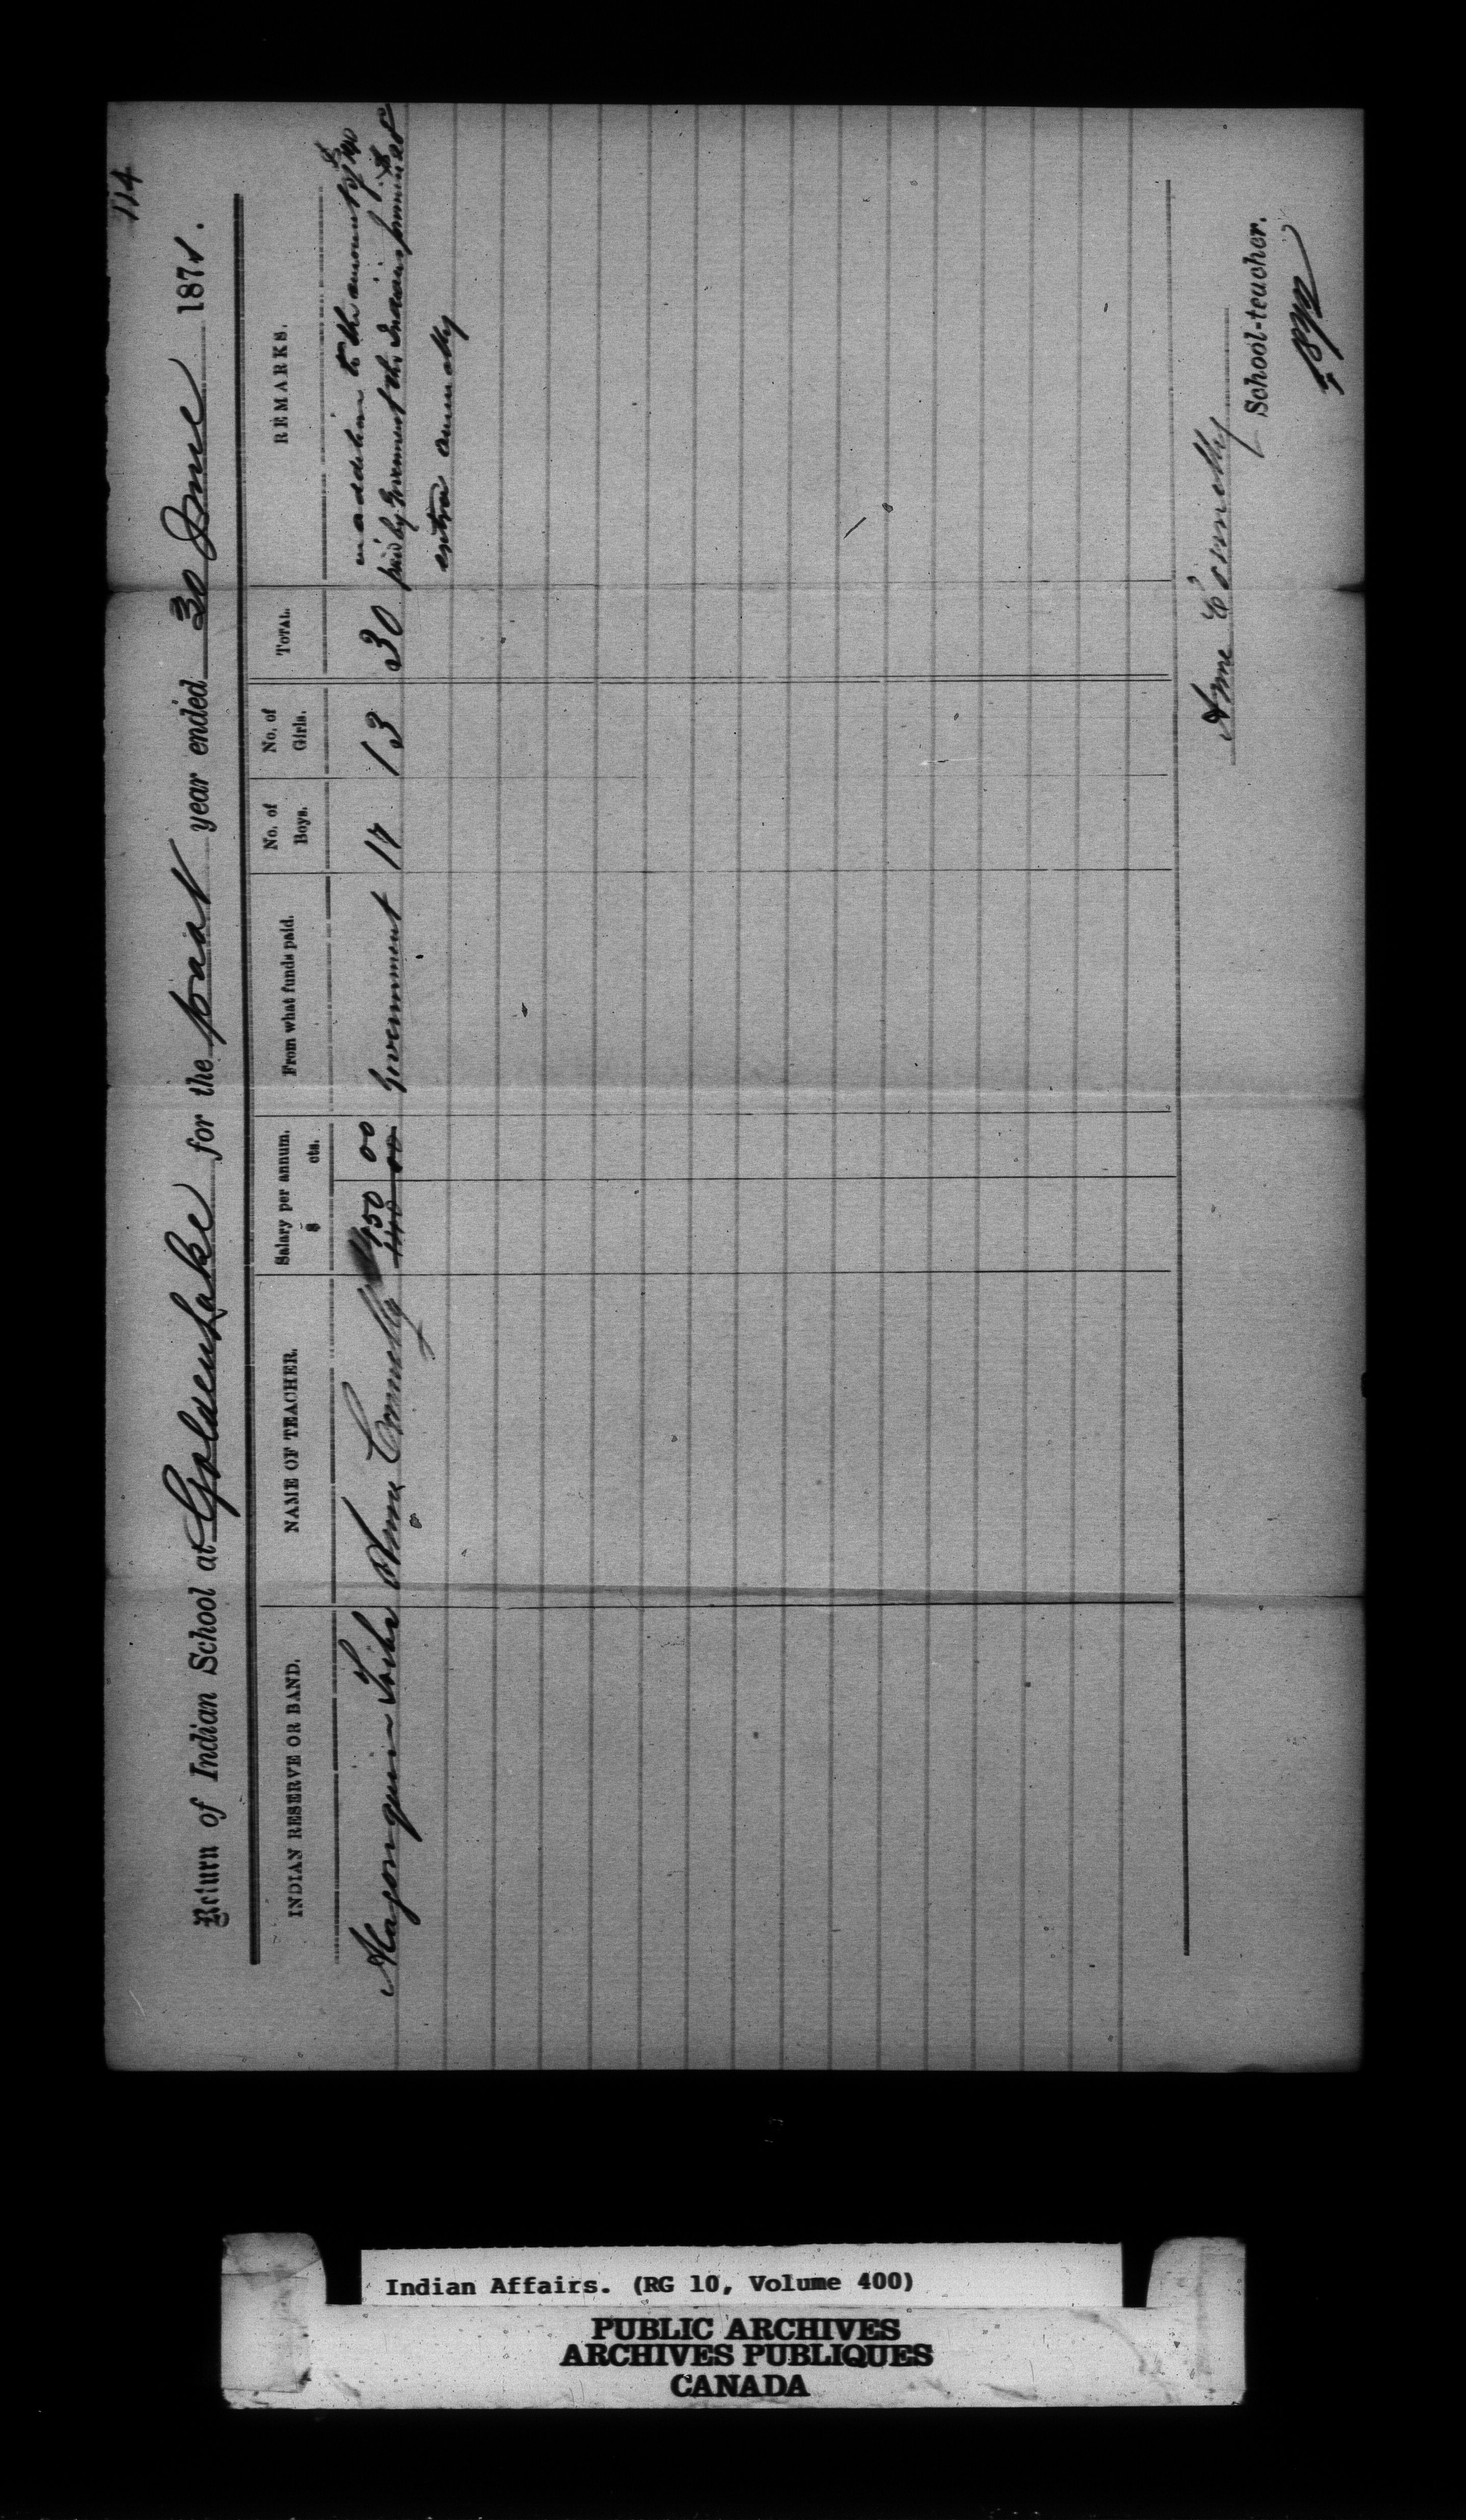 114
Return of Indian School at Golden Lake for the past year ended 30 June 187
INDIAN RESERVE OR BAND. NAME OF TEACHER. Salary per annum. $ cts. From what funds paid. No. of Boys. No. of Girls. TOTAL. REMARKS.
Algonquin Tribe Anne Connelly 150 00 Government 17 13 30 in addition to the amount of $140
140 00
paid by Government the Indians
extra annually
Anne Connelly
School-teacher.
Indian Affairs. (RG 10, Volume 400)
PUBLIC ARCHIVES
ARCHIVES PUBLIQUES
CANADA